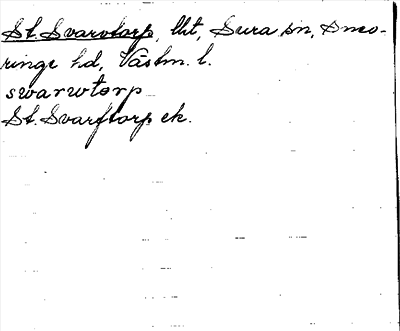 St. Svarvtorp, lht, Sura sn, Snevringe hd, Västm. l.
swarwtorp
St. Svarftorp ek.